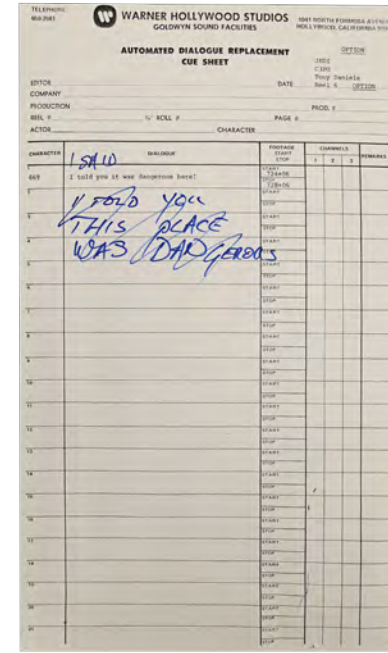 TELEPHONE
WARNER HOLLYWOOD STUDIOS
GOLDWYN SOUND FACILITIES
1041 NORTH FORMOSA AVENUE
HOLLYWOOD, CALIFORNIA
AUTOMATED DIALOGUE REPLACEMENT
CUE SHEET
OPTION
JEDI
C3PO
Tony Daniels
Reel 6 OPTION
EDITOR
DATE
COMPANY
PRODUCTION
PROD. #
REEL #
ROLL #
PAGE #
ACTOR
CHARACTER
CHARACTER
DIALOGUE
FOOTAGE
START
STOP
CHANNELS
1 2 3
REMARKS
I SAID
I told you it was dangerous here!
START
724+06
STOP
728+06
I TOLD YOU
THIS PLACE
WAS DANGEROUS